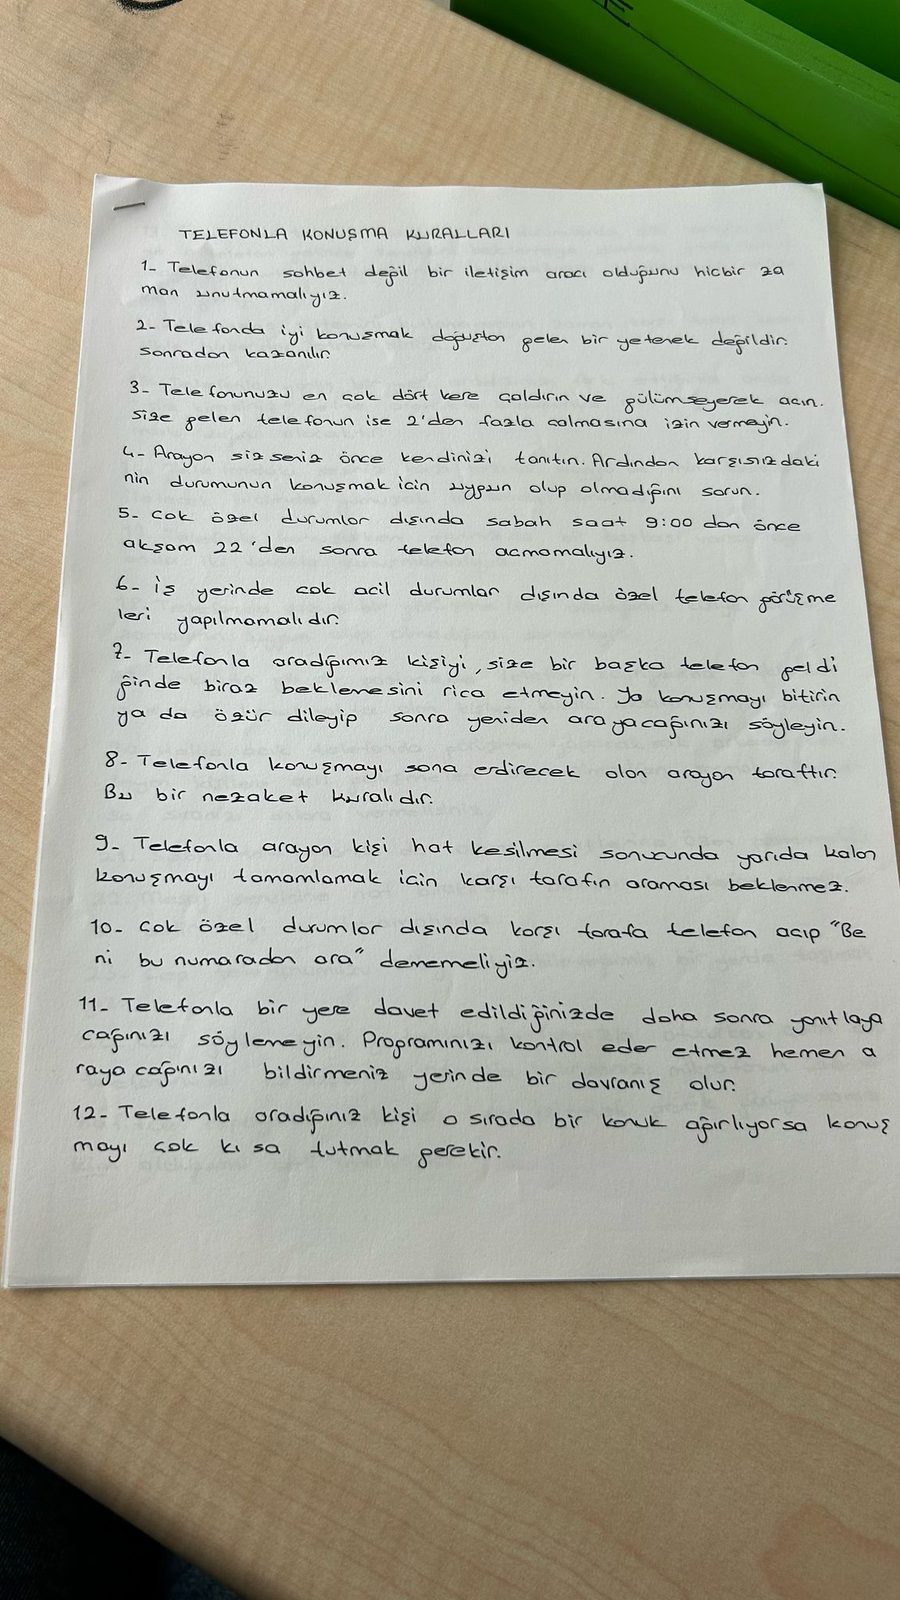 TELEFONLA KONUŞMA KURALLARI
1- Telefonun sohbet değil bir iletişim aracı olduğunu hicbir za
man unutmamalıyız.
2- Telefonda iyi konuşmak doğuştan gelen bir yetenek değildir.
sonradan kazanılır.
3- Telefonunuzu en çok dört kere çaldırın ve gülümseyerek açın.
size gelen telefonun ise 2'den fazla çalmasına izin vermeyin.
4- Arayan sizseniz önce kendinizi tanıtın. Ardından karşısızdaki
nin durumunun konuşmak için uygun olup olmadığını sorun.
5- çok özel durumlar dışında sabah saat 9:00 dan önce
akşam 22'den sonra telefon açmamalıyız.
6- iş yerinde çok acil durumlar dışında özel telefon görüşme
leri yapılmamalıdır.
7- Telefonla aradığımız kişiyi, size bir başka telefon geldi
ğinde biraz beklemesini rica etmeyin. Ya konuşmayı bitirin
ya da özür dileyip sonra yeniden arayacağınızı söyleyin.
8- Telefonla konuşmayı sona erdirecek olan arayan taraftır.
Bu bir nezaket kuralıdır.
9- Telefonla arayan kişi hat kesilmesi sonucunda yarıda kalan
konuşmayı tamamlamak için karşı tarafın araması beklenmez.
10- çok özel durumlar dışında karşı tarafa telefon açıp "Be
ni bu numaradan ara" dememeliyiz.
11- Telefonla bir yere davet edildiğinizde daha sonra yanıtlaya
cağınızı söylemeyin. Programınızı kontrol eder etmez hemen a
rayacağınızı bildirmeniz yerinde bir davranış olur.
12- Telefonla aradığınız kişi o sırada bir konuk ağırlıyorsa konuş
mayı çok kısa tutmak gerekir.